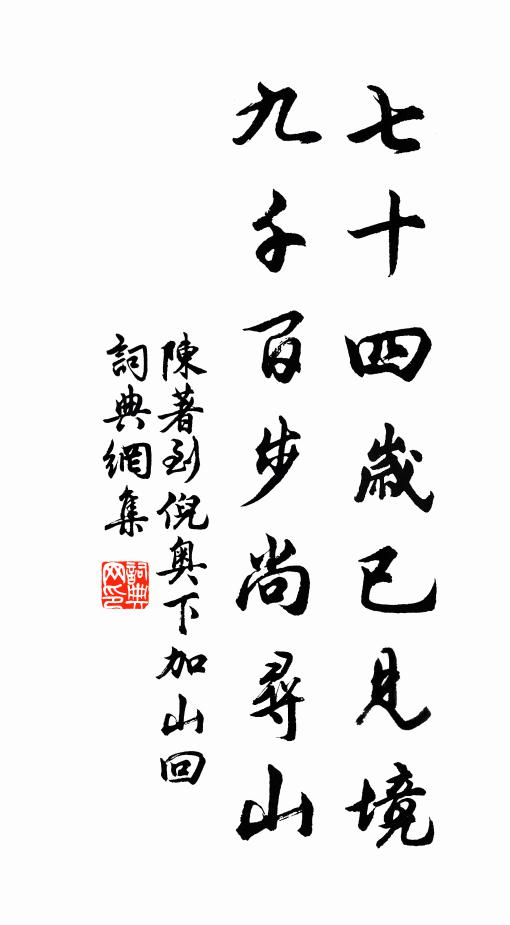 七十四歲已見境
九千百步尚尋山
陳著到倪奧下加山回
詞典網集
詞典網印